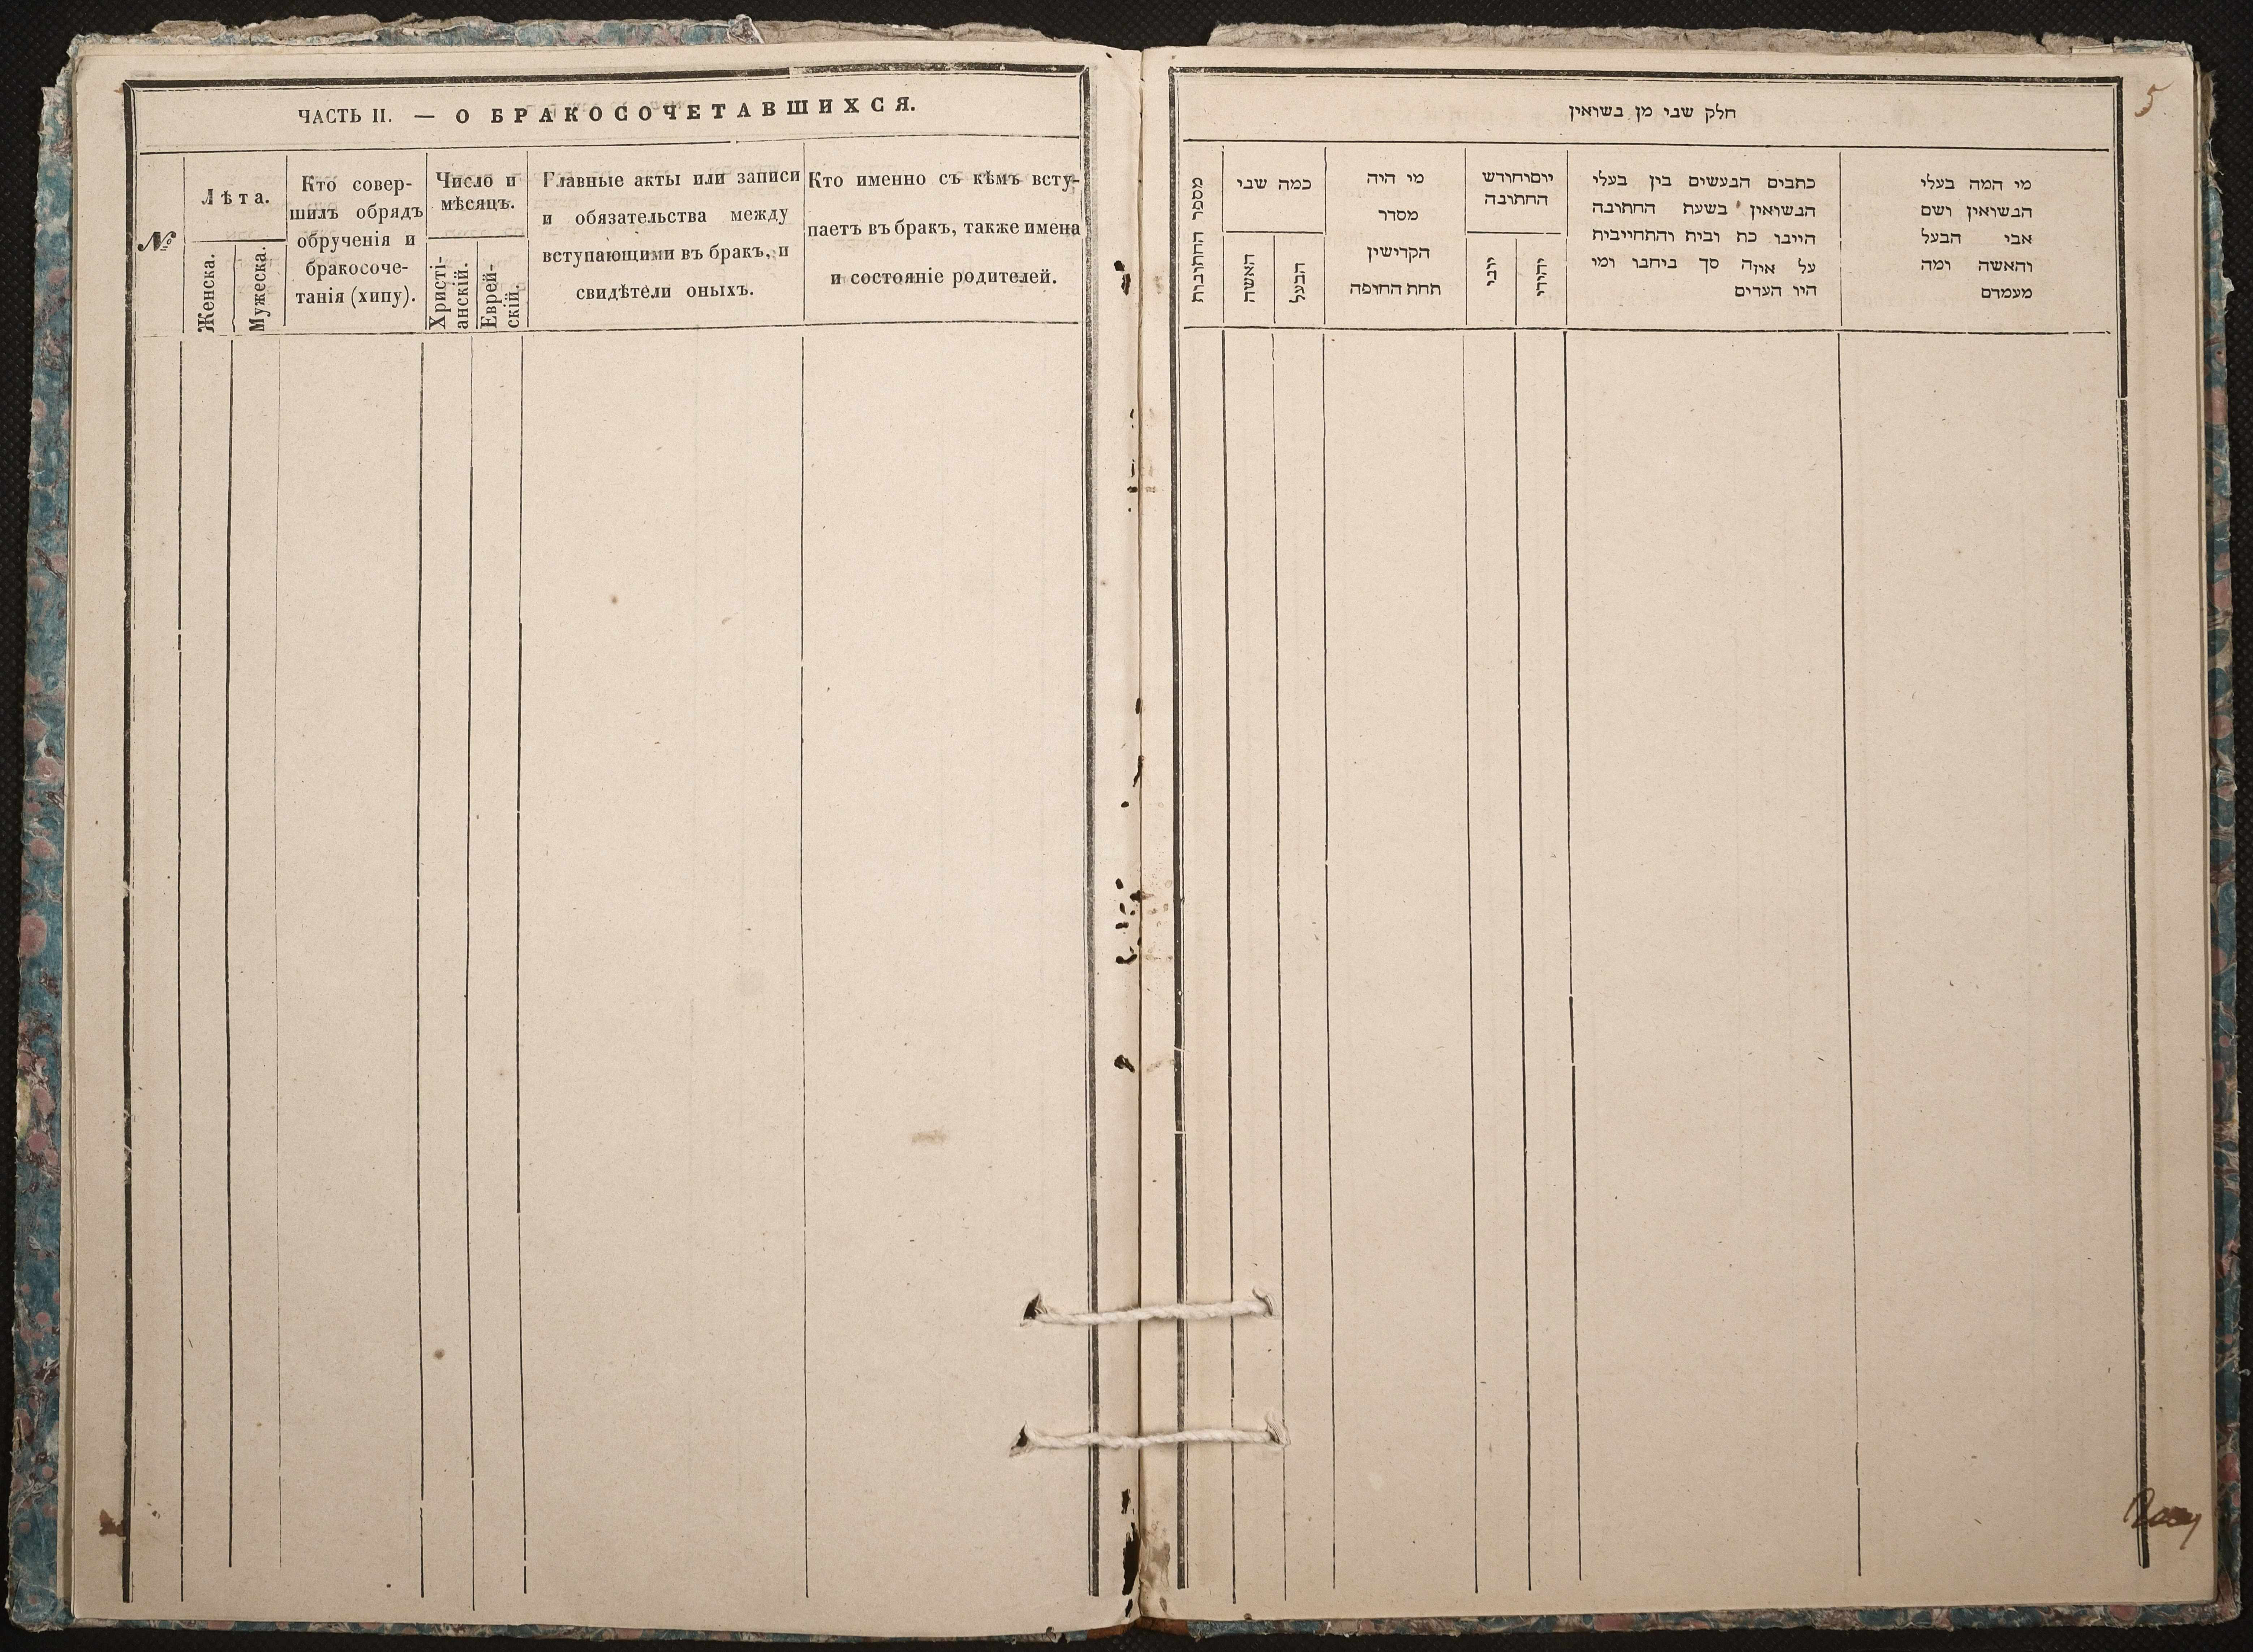 ЧАСТЬ II. — О БРАКОСОЧЕТАВШИХСЯ.
№
Лѣта.
Женска.
Мужеска.
Кто совер-
шилъ обрядъ
обрученія и
бракосоче-
танія (хипу).
Число и
мѣсяцъ.
Христі-
анскій.
Еврей-
скій.
Главные акты или записи
и обязательства между
вступающими въ бракъ, и
свидѣтели оныхъ.
Кто именно съ кѣмъ всту-
паетъ въ бракъ, также имена
и состояніе родителей.
5
חלק שני מן נשואין
מספר החתונות
כמה שני
האשה
הבעל
מי היה
מסדר
הקדישין
תחת החופה
יוםוחודש
החתונה
יוני
יהודי
כתבים הנעשים בין בעלי
הנשואין בשעת החתונה
היינו כת ובית והתחייבית
על איזה סך ביחבו ומי
היו העדים
מי המה בעלי
הנשואין ושם
אבי הבעל
והאשה ומה
מעמדם